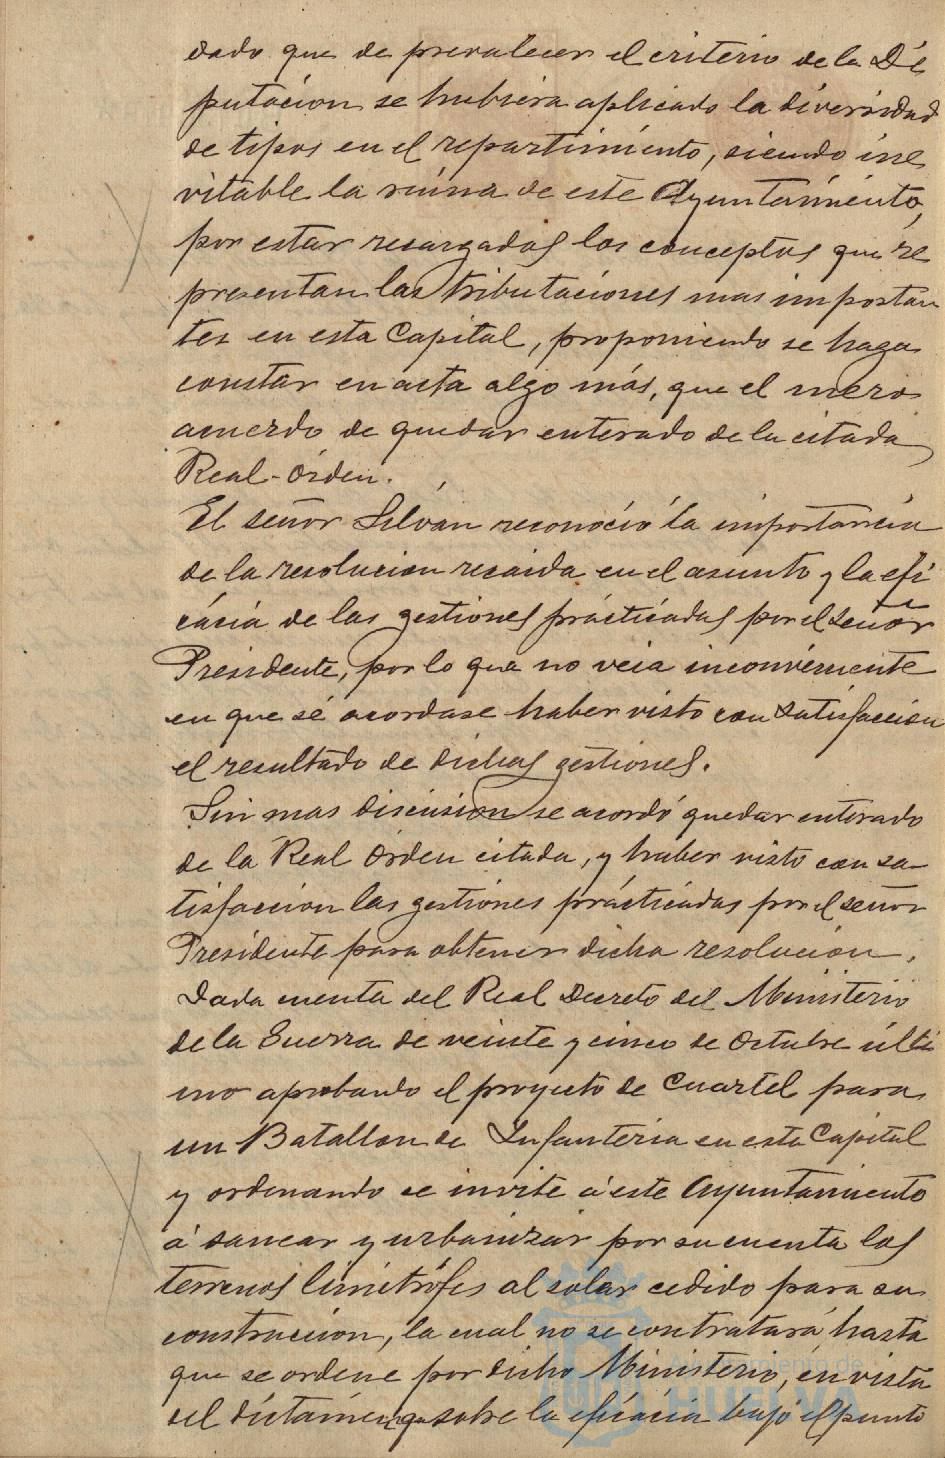 dado que de prevalecer el criterio de la Di
putacion se hubiera aplicado la diversidad
de tipos en el repartimiento, siendo ine
vitable la ruina de este Ayuntamiento,
por estar recargados los conceptos que re
presentan las tributaciones mas importan
tes en esta Capital, proponiendo se haga
constar en acta algo más, que el mero
acuerdo de quedar enterado de la citada
Real-órden.
El señor Silván reconoció la importancia
de la resolucion recaida en el asunto y la efi
cacia de las gestiones practicadas por el señor
Presidente, por lo que no veia inconveniente
en que se acordase haber visto con satisfaccion
el resultado de dichas gestiones.
Sin mas discusion se acordó quedar enterado
de la Real órden citada, y haber visto con sa-
tisfaccion las gestiones practicadas por el señor
Presidente para obtener dicha resolucion.
Dada cuenta del Real Decreto del Ministerio
de la Guerra de veinte y cinco de Octubre últi
mo aprobando el proyecto de Cuartel para
un Batallon de Infanteria en esta Capital
y ordenando se invite á este Ayuntamiento
á sanear y urbanizar por su cuenta los
terrenos limítrofes al solar cedido para su
construccion, la cual no se contratará hasta
que se ordene por dicho Ministerio, en vista
del dictámen que sobre la eficacia bajo el punto
Ayuntamiento de
HUELVA